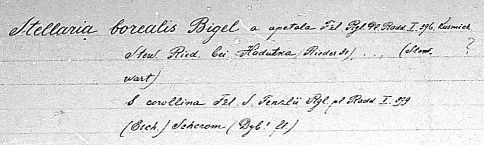 Stellaria borealis Bigel α apetala Fzl Rgl Pl. Radd. I. 396. Kusmisch
Stew Ried. bei Kadutna, Rieder 31) ... (Stew ?
wart)
β corollina Fzl. S. Fenzlii Rgl pl Radd I. 399
(Esch) Scherom (Dyb! fl)